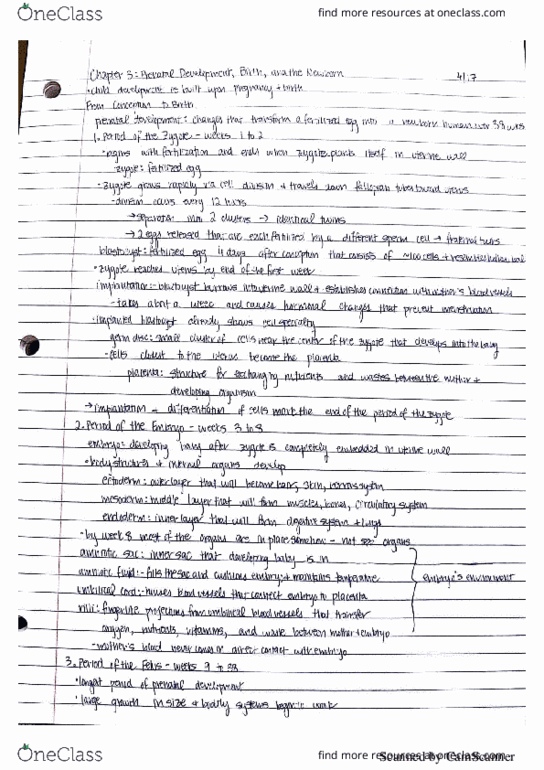 OneClass
find more resources at oneclass.com
Chapter 3: Prenatal Development, Birth, and the Newborn
41.7
·child development is built upon pregnancy + birth
From Conception to Birth
prenatal development: changes that transform a fertilized egg into a newborn human over 38 wks
1. Period of the Zygote - weeks 1 to 2
·begins with fertilization and ends when zygote plants itself in uterine wall
zygote: fertilized egg
·zygote grows rapidly via cell division + travels down fallopian tubes toward uterus
-division occurs every 12 hours
→ separates into 2 clusters → identical twins
→ 2 eggs released that are each fertilized by a different sperm cell → fraternal twins
blastocyst: fertilized egg 4 days after conception that consists of ~100 cells + resembles hollow ball
·zygote reaches uterus by end of the first week
implantation: blastocyst burrows into uterine wall + establishes connection with mother's blood vessels
-takes about a week and causes hormonal changes that prevent menstruation
·Implanted blastocyst already shows cell specialty
germ disc: small cluster of cells near the center of the zygote that develops into the baby
-cells closest to the uterus become the placenta
placenta: structure for exchanging nutrients and wastes between the mother +
developing organism
→ implantation + differentiation of cells mark the end of the period of the zygote
2. Period of the Embryo - weeks 3 to 8
embryo: developing baby after zygote is completely embedded in uterine wall
·body structures + internal organs develop
ectoderm: outer layer that will become hair, skin, nervous system
mesoderm: middle layer that will form muscles, bones, circulatory system
endoderm: inner layer that will form digestive system + lungs
·by week 8 most of the organs are in place somehow - not sex organs
amniotic sac: inner sac that developing baby is in
amniotic fluid: fills the sac and cushions embryo + maintains temperature
embryo's environment
umbilical cord: houses blood vessels that connect embryo to placenta
villi: fingerlike projections from umbilical blood vessels that transfer
oxygen, nutrients, vitamins, and waste between mother + embryo
-mother's blood never comes in direct contact with embryo
3. Period of the Fetus - weeks 9 to 38
·longest period of prenatal development
·large growth in size + bodily systems begin to work
OneClass
find more resources at oneclass.com
Scanned by CamScanner